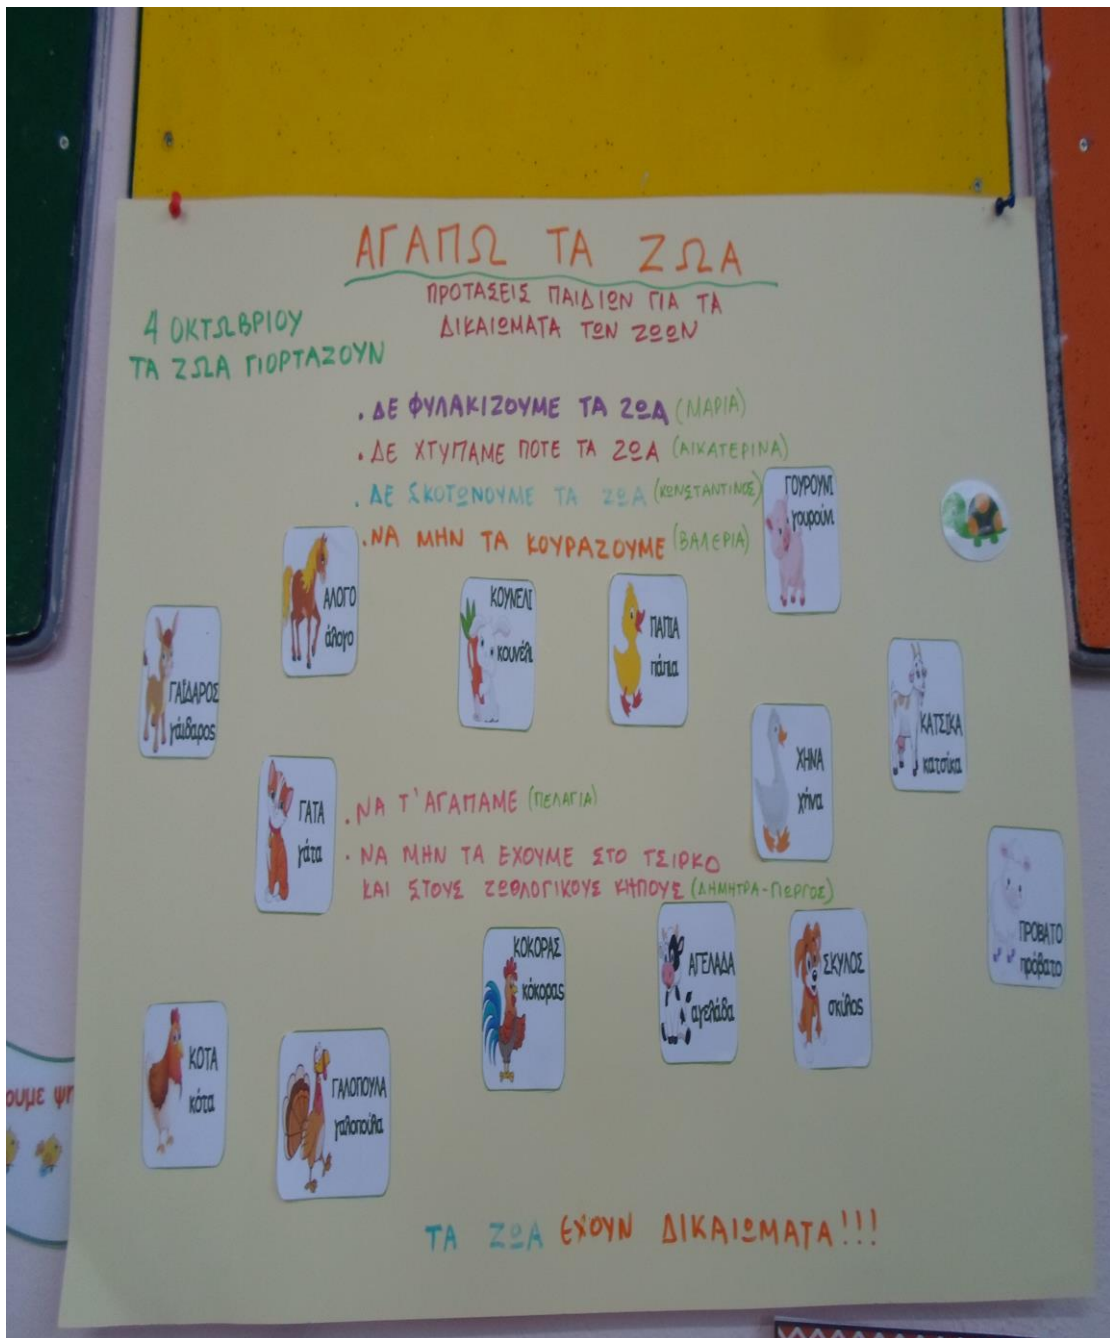 ΑΓΑΠΩ ΤΑ ΖΩΑ
ΠΡΟΤΑΣΕΙΣ ΠΑΙΔΙΩΝ ΓΙΑ ΤΑ
ΔΙΚΑΙΩΜΑΤΑ ΤΩΝ ΖΩΩΝ
4 ΟΚΤΩΒΡΙΟΥ
ΤΑ ΖΩΑ ΓΙΟΡΤΑΖΟΥΝ
. ΔΕ ΦΥΛΑΚΙΖΟΥΜΕ ΤΑ ΖΩΑ (ΜΑΡΙΑ)
. ΔΕ ΧΤΥΠΑΜΕ ΠΟΤΕ ΤΑ ΖΩΑ (ΑΙΚΑΤΕΡΙΝΑ)
. ΔΕ ΣΚΟΤΩΝΟΥΜΕ ΤΑ ΖΩΑ (ΚΩΝΣΤΑΝΤΙΝΟΣ)
. ΝΑ ΜΗΝ ΤΑ ΚΟΥΡΑΖΟΥΜΕ (ΒΑΛΕΡΙΑ)
ΓΟΥΡΟΥΝΙ
γουρούνι
ΑΛΟΓΟ
άλογο
ΚΟΥΝΕΛΙ
κουνέλι
ΠΑΠΙΑ
πάπια
ΓΑΪΔΑΡΟΣ
γάιδαρος
ΚΑΤΣΙΚΑ
κατσίκα
ΧΗΝΑ
χήνα
ΓΑΤΑ
γάτα
. ΝΑ Τ'ΑΓΑΠΑΜΕ (ΠΕΛΑΓΙΑ)
. ΝΑ ΜΗΝ ΤΑ ΕΧΟΥΜΕ ΣΤΟ ΤΣΙΡΚΟ
ΚΑΙ ΣΤΟΥΣ ΖΩΟΛΟΓΙΚΟΥΣ ΚΗΠΟΥΣ (ΔΗΜΗΤΡΑ-ΓΙΩΡΓΟΣ)
ΠΡΟΒΑΤΟ
πρόβατο
ΚΟΚΟΡΑΣ
κόκορας
ΑΓΕΛΑΔΑ
αγελάδα
ΣΚΥΛΟΣ
σκύλος
ΚΟΤΑ
κότα
ΓΑΛΟΠΟΥΛΑ
γαλοπούλα
ΤΑ ΖΩΑ ΕΧΟΥΝ ΔΙΚΑΙΩΜΑΤΑ!!!